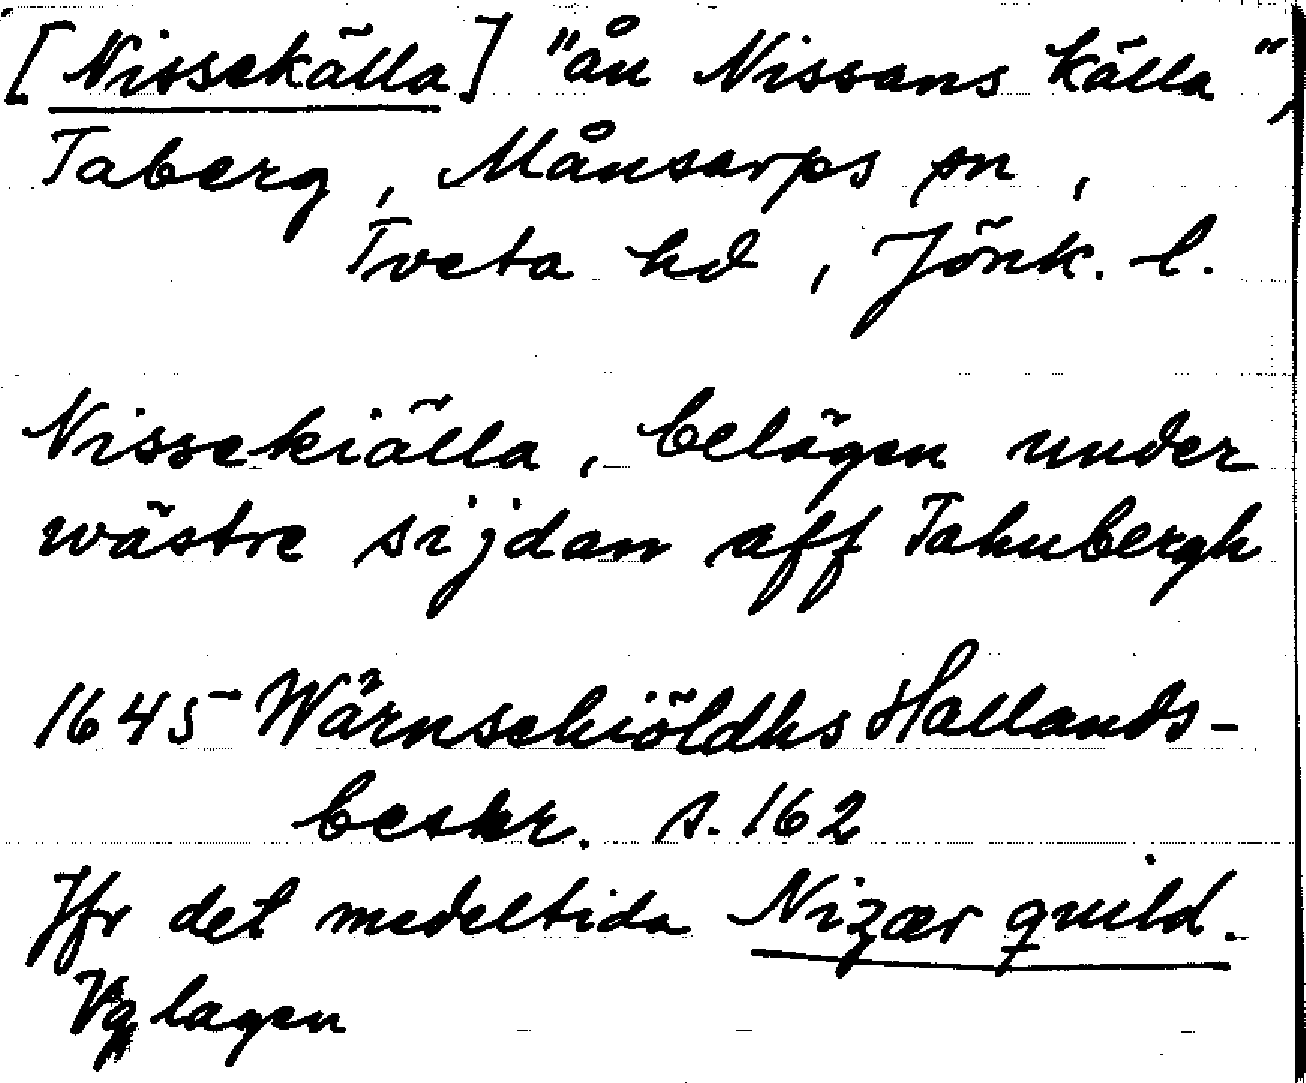 [Nissekälla] "ån Nissans källa",
Taberg, Månsarps sn,
Tveta hd, Jönk. l.
Nissekiälla, belägen under
wästre sijdan aff Tahubergh
1645 Wärnschiöldhs Hallands-
beskr. s. 162
Jfr det medeltida Nizær quild.
Vg lagen